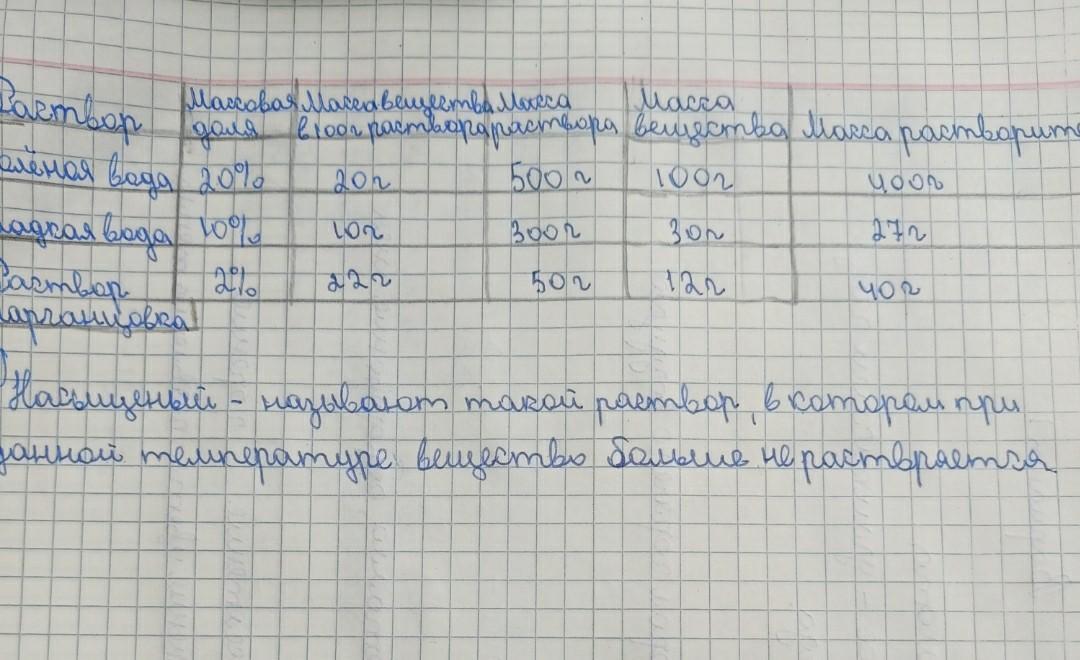 Раствор Массовая доля Масса вещества в 100г раствора Масса раствора Масса вещества Масса растворит
олёная вода 20% 20г 500г 100г 400г
ладкая вода 10% 10г 300г 30г 27г
Раствор 2% 22г 50г 12г 40г
арганцовка
Насыщеный - называют такой раствор, в котором при
данной температуре вещество больше не растворяется